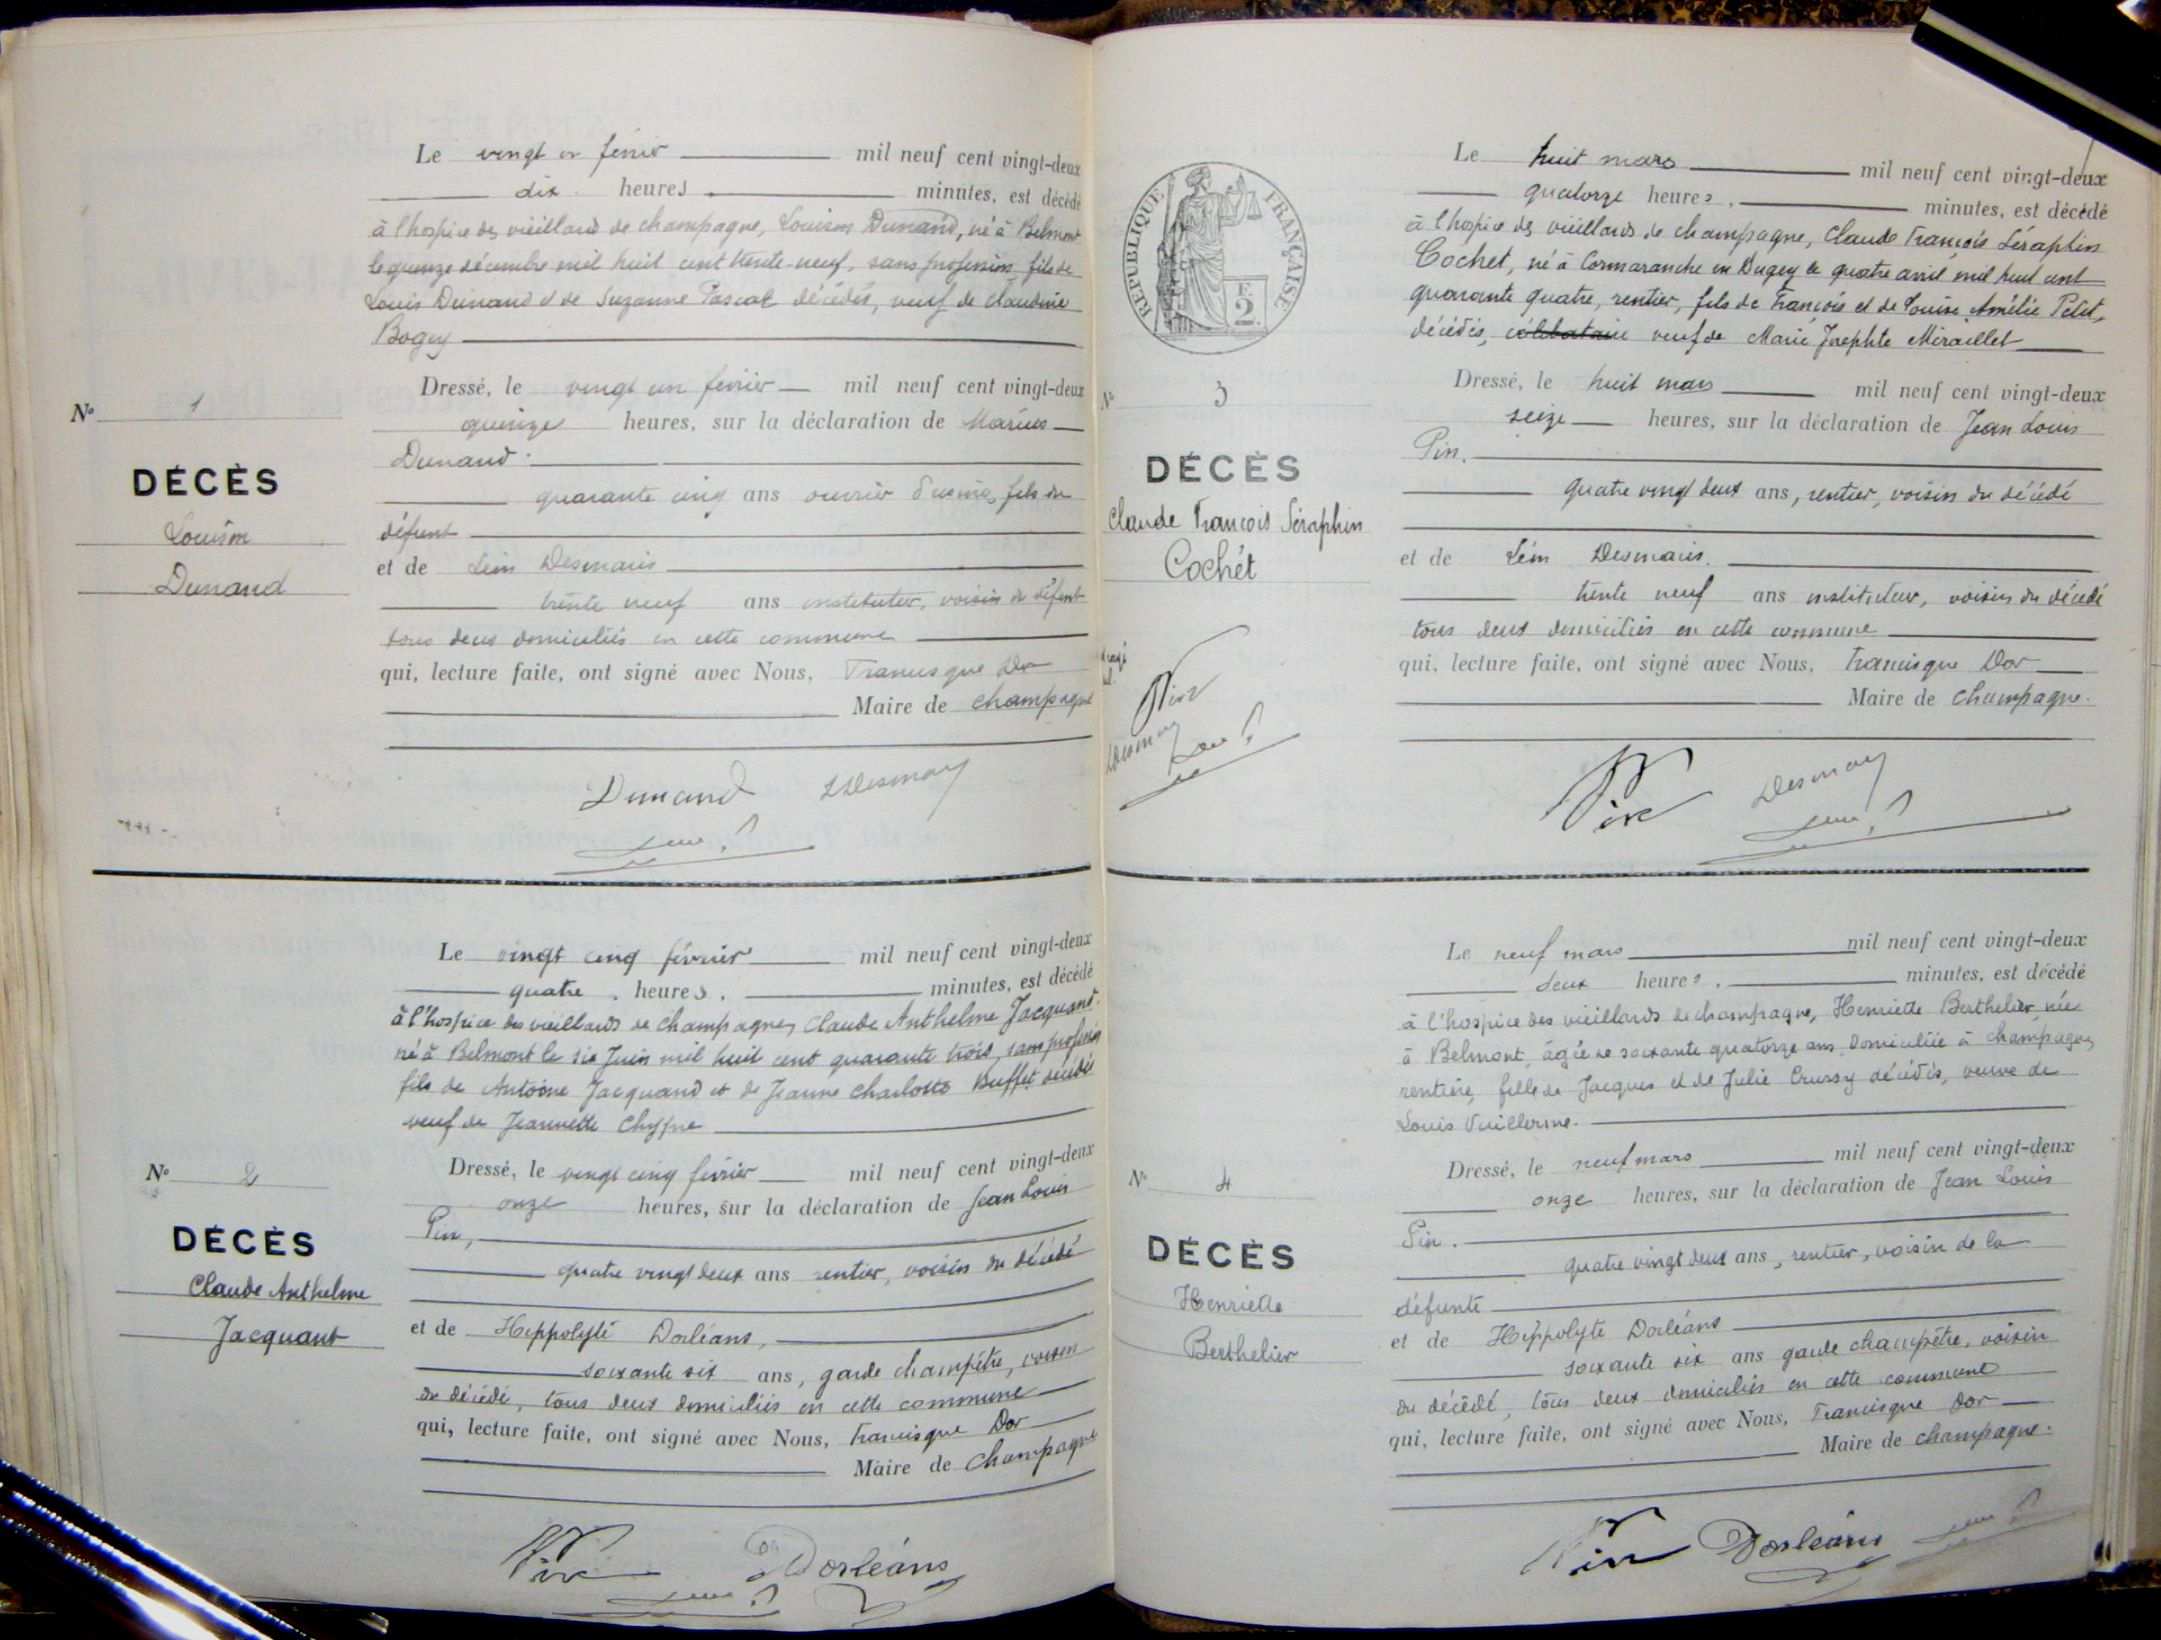 Le vingt un février mil neuf cent vingt-deux
dix heures minutes, est décédé
à l'hospice des vieillards de champagne, Louison Dunand, né à Belmont
le quinze décembre mil huit cent trente-neuf, sans profession, fils de
Louis Dunand et de Suzanne Pascal décédés, veuf de Claudine
Bogey
No 1
DÉCÈS
Louison
Dunand
Dressé, le vingt un février mil neuf cent vingt-deux
quinze heures, sur la déclaration de Marius
Dunand
quarante cinq ans ouvrier d'usine, fils du
défunt
et de Léon Desmaris
trente neuf ans instituteur, voisin du défunt
tous deux domiciliés en cette commune
qui, lecture faite, ont signé avec Nous, Francisque Dor
Maire de champagne
Dunand
Le vingt cinq février mil neuf cent vingt-deux
quatre heures. minutes, est décédé
à l'hospice des vieillards de champagne, Claude Anthelme Jacquand
né à Belmont le six Juin mil huit cent quarante trois, sans profession
fils de Antoine Jacquand et de Jeanne Charlotte Buffet décédés
veuf de Jeannette
No 2
DÉCÈS
Claude Anthelme
Jacquand
Dressé, le vingt cinq février mil neuf cent vingt-deux
onze heures, sur la déclaration de Jean Louis
Pin,
quatre vingt deux ans rentier, voisin du décédé
et de Hippolyte Dorléans,
soixante six ans, garde champêtre, voisin
du décédé, tous deux domiciliés en cette commune
qui, lecture faite, ont signé avec Nous, Francisque Dor
Maire de Champagne
Pin Dorléans
RÉPUBLIQUE FRANÇAISE
F.
2.
Le huit mars mil neuf cent vingt-deux
quatorze heures. minutes, est décédé
à l'hospice des vieillards de champagne, Claude François Séraphin
Cochet, né à Cormaranche en Bugey le quatre avril mil huit cent
quarante quatre, rentier, fils de François et de Louise Amélie Petit,
décédés, célibataire veuf de Marie Josephte Miraillet
No 3
DÉCÈS
Claude François Séraphin
Cochet
Pin
Dressé, le huit mars mil neuf cent vingt-deux
seize heures, sur la déclaration de Jean Louis
Pin.
quatre vingt deux ans, rentier, voisin du décédé
et de Léon Desmaris.
trente neuf ans instituteur, voisin du décédé
tous deux domiciliés en cette commune
qui, lecture faite, ont signé avec Nous, Francisque Dor
Maire de Champagne.
Pin
Le neuf mars mil neuf cent vingt-deux
deux heures. minutes, est décédé
à l'hospice des vieillards de champagne, Henriette Berthelier, née
à Belmont, âgée de soixante quatorze ans domiciliée à champagne,
rentière, fille de Jacques et de Julie Crussy décédés, veuve de
Louis Vuillerme.
No 4
DÉCÈS
Henriette
Berthelier
Dressé, le neuf mars mil neuf cent vingt-deux
onze heures, sur la déclaration de Jean Louis
Pin.
quatre vingt deux ans, rentier, voisin de la
défunte
et de Hippolyte Dorléans
soixante six ans garde champêtre, voisin
du décédé, tous deux domiciliés en cette commune
qui, lecture faite, ont signé avec Nous, Francisque Dor
Maire de champagne.
Pin Dorléans